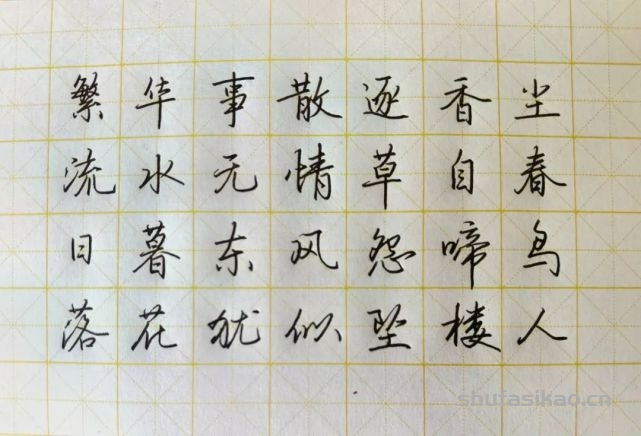 繁华事散逐香尘
流水无情草自春
日暮东风怨啼鸟
落花犹似坠楼人
shufasikao.cn